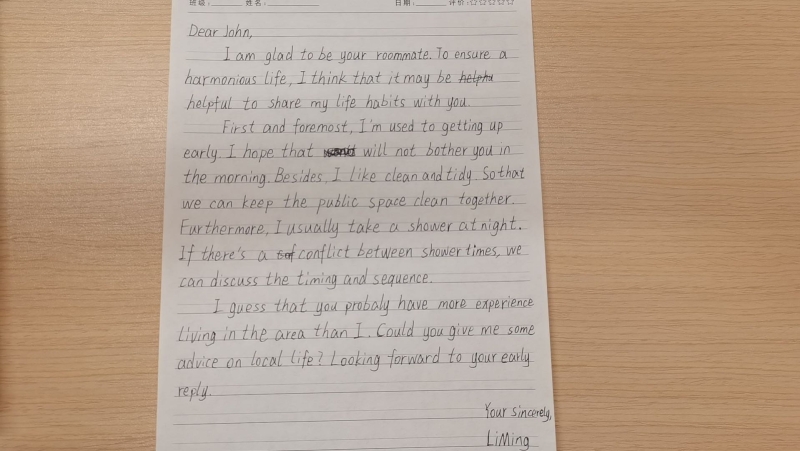 班级: 姓名: 日期: 评价:☆☆☆☆☆
Dear John,
I am glad to be your roommate. To ensure a
harmonious life, I think that it may be helphu
helpful to share my life habits with you.
First and foremost, I'm used to getting up
early. I hope that will not bother you in
the morning. Besides, I like clean and tidy. So that
we can keep the public space clean together.
Furthermore, I usually take a shower at night.
If there's a conflict between shower times, we
can discuss the timing and sequence.
I guess that you probaly have more experience
living in the area than I. Could you give me some
advice on local life? Looking forward to your early
reply.
Your sincerely,
LiMing